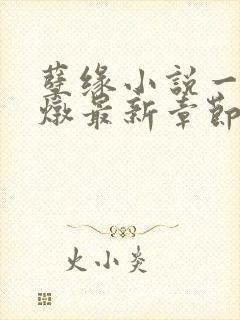 孽缘小说一
燉最新章節
火小炎